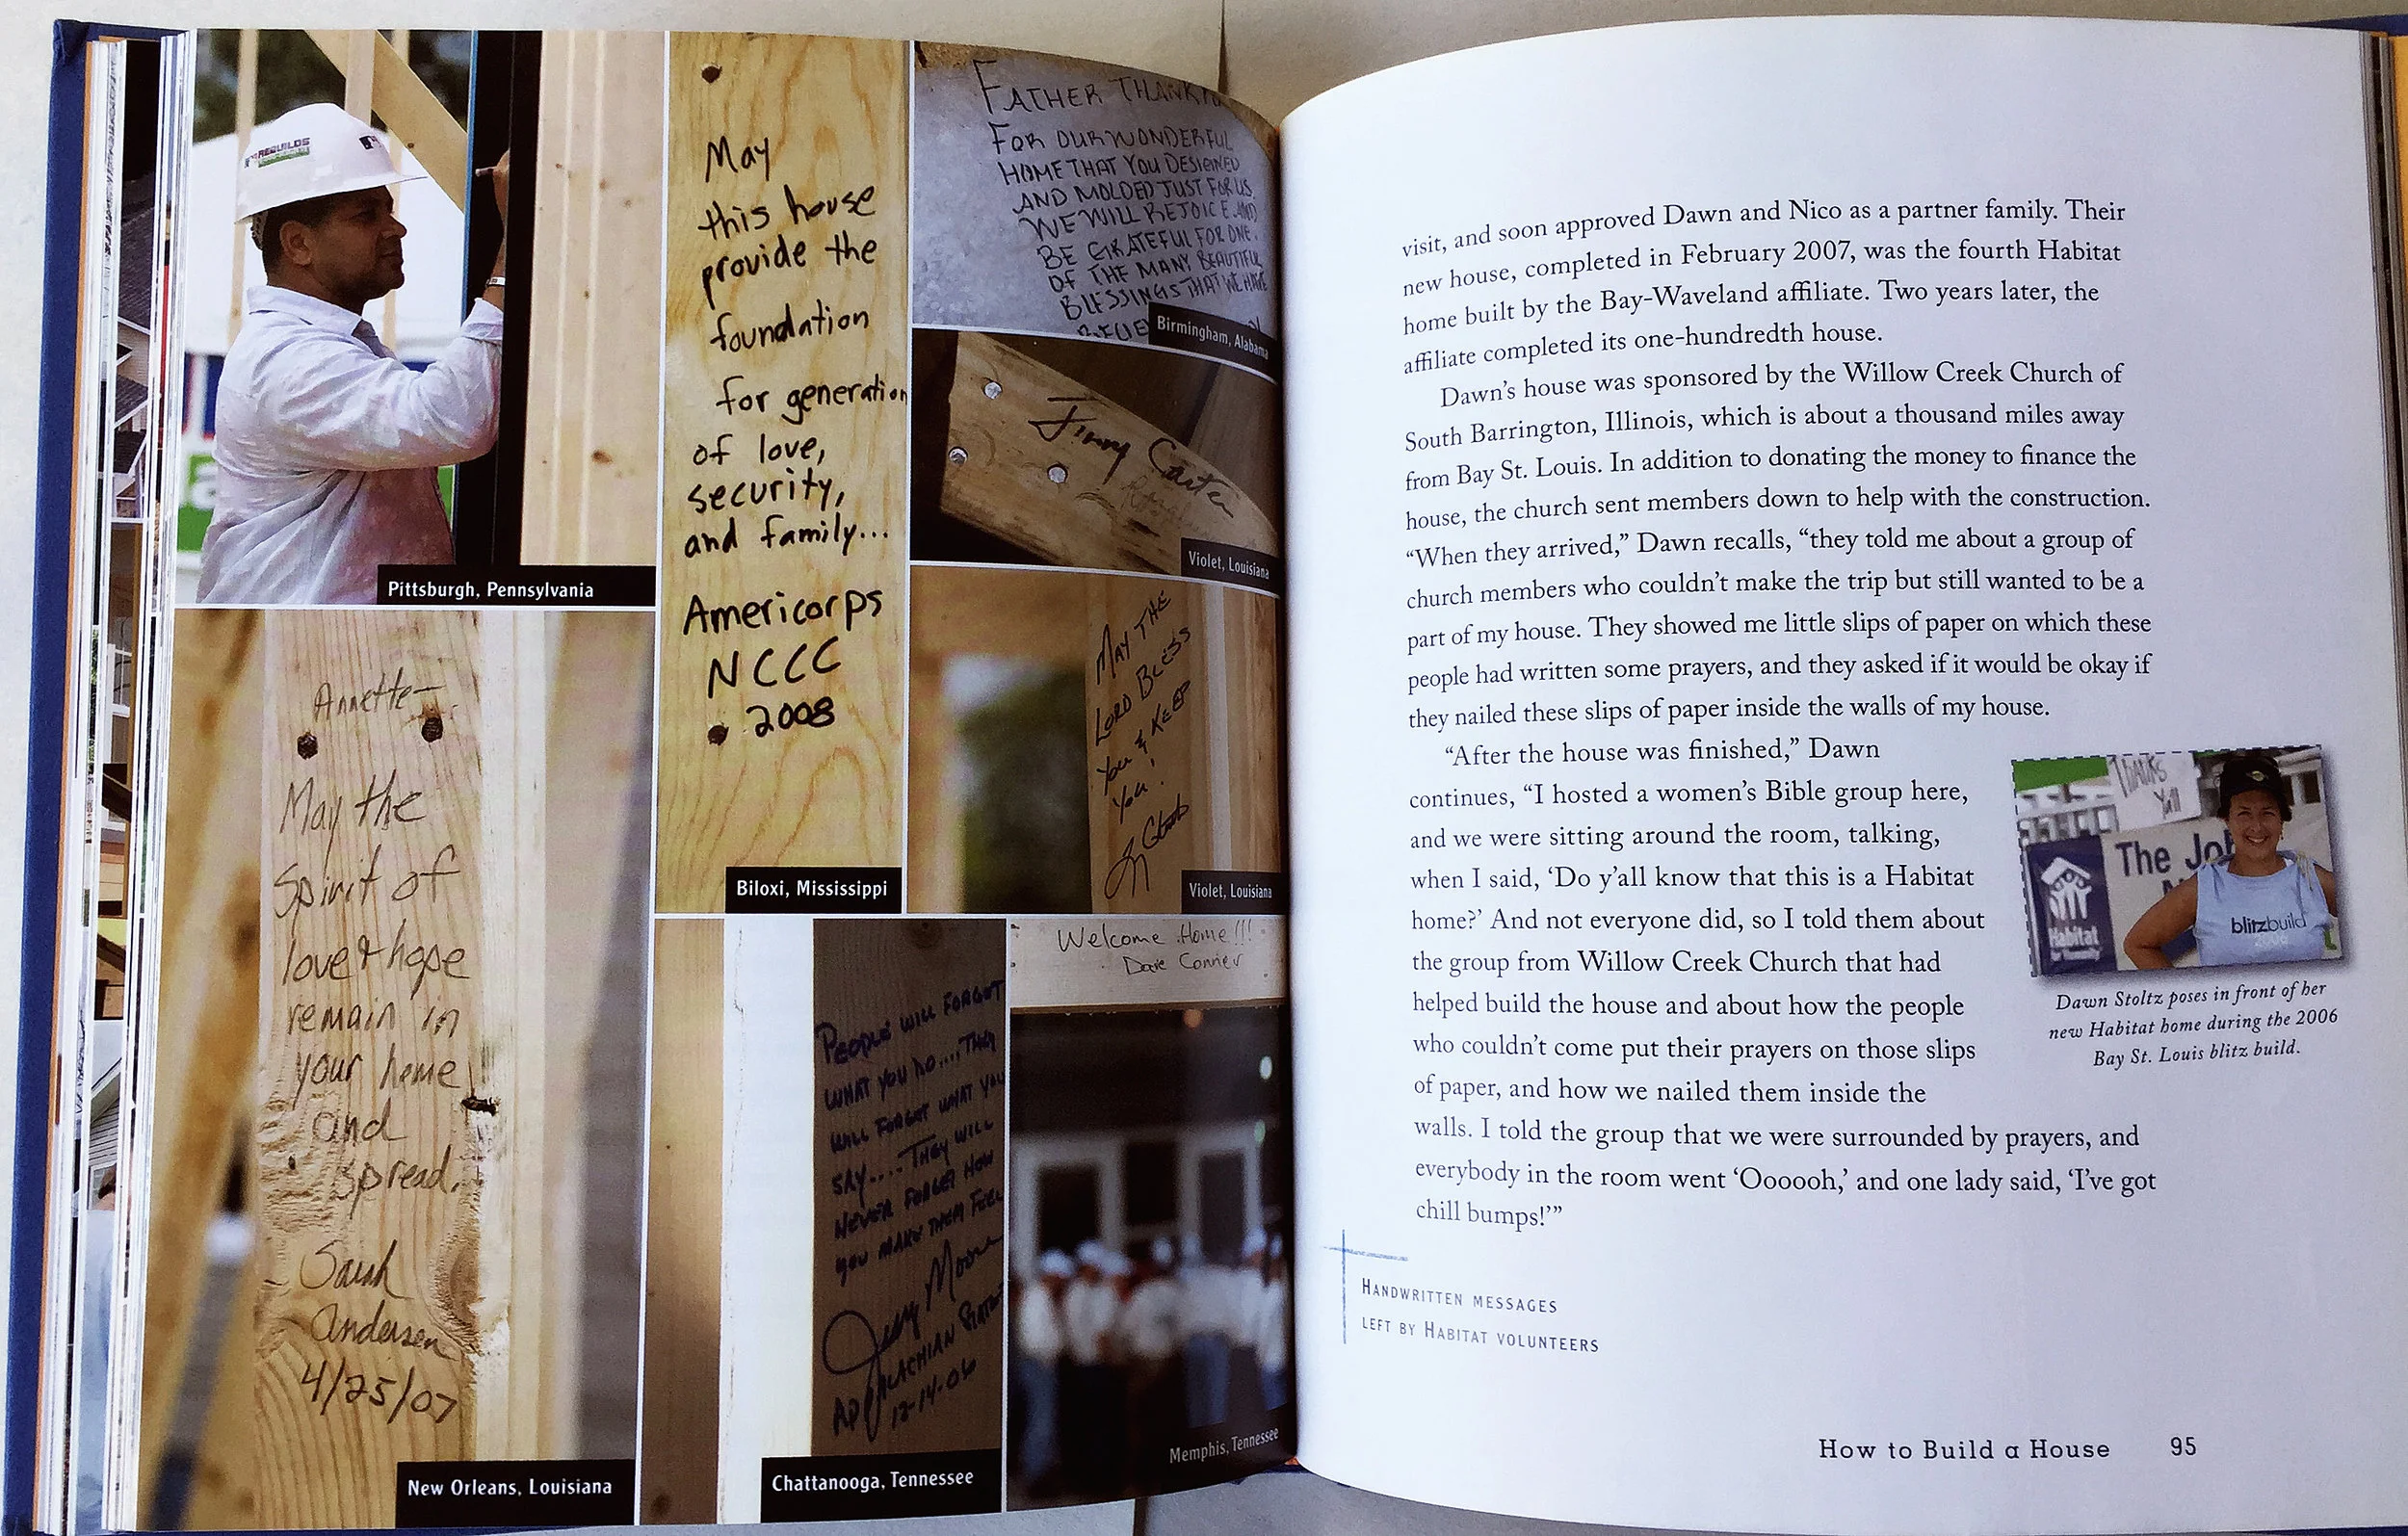 REBUILDS
Pittsburgh, Pennsylvania
Annette—
May the
Spirit of
love & hope
remain in
your home
and
spread.
Sarah
Andersen
4/25/07
New Orleans, Louisiana
May
this house
provide the
foundation
for generation
of love,
security,
and family...
Americorps
NCCC
2008
Biloxi, Mississippi
FATHER THANK
FOR OUR WONDERFUL
HOME THAT YOU DESIGNED
AND MOLDED JUST FOR US.
WE WILL REJOICE AND
BE GRATEFUL FOR ONE
OF THE MANY BEAUTIFUL
BLESSINGS THAT WE HAVE
Birmingham, Alabama
Jimmy Carter
Violet, Louisiana
MAY THE
LORD BLESS
YOU & KEEP
YOU!
Violet, Louisiana
PEOPLE WILL FORGET
WHAT YOU DO....THEY
WILL FORGET WHAT YOU
SAY....THEY WILL
NEVER FORGET HOW
YOU MAKE THEM FEEL
Jerry Moore
APPALACHIAN STATE
12-14-06
Chattanooga, Tennessee
Welcome Home!!!
Dave Conner
Memphis, Tennessee
visit, and soon approved Dawn and Nico as a partner family. Their
new house, completed in February 2007, was the fourth Habitat
home built by the Bay-Waveland affiliate. Two years later, the
affiliate completed its one-hundredth house.
Dawn’s house was sponsored by the Willow Creek Church of
South Barrington, Illinois, which is about a thousand miles away
from Bay St. Louis. In addition to donating the money to finance the
house, the church sent members down to help with the construction.
“When they arrived,” Dawn recalls, “they told me about a group of
church members who couldn’t make the trip but still wanted to be a
part of my house. They showed me little slips of paper on which these
people had written some prayers, and they asked if it would be okay if
they nailed these slips of paper inside the walls of my house.
“After the house was finished,” Dawn
continues, “I hosted a women’s Bible group here,
and we were sitting around the room, talking,
when I said, ‘Do y’all know that this is a Habitat
home?’ And not everyone did, so I told them about
the group from Willow Creek Church that had
helped build the house and about how the people
who couldn’t come put their prayers on those slips
of paper, and how we nailed them inside the
walls. I told the group that we were surrounded by prayers, and
everybody in the room went ‘Oooooh,’ and one lady said, ‘I’ve got
chill bumps!’”
THANKS
Y'all
The Jo
Habitat
blitzbuild
2006
Dawn Stoltz poses in front of her
new Habitat home during the 2006
Bay St. Louis blitz build.
HANDWRITTEN MESSAGES
LEFT BY HABITAT VOLUNTEERS
How to Build a House 95